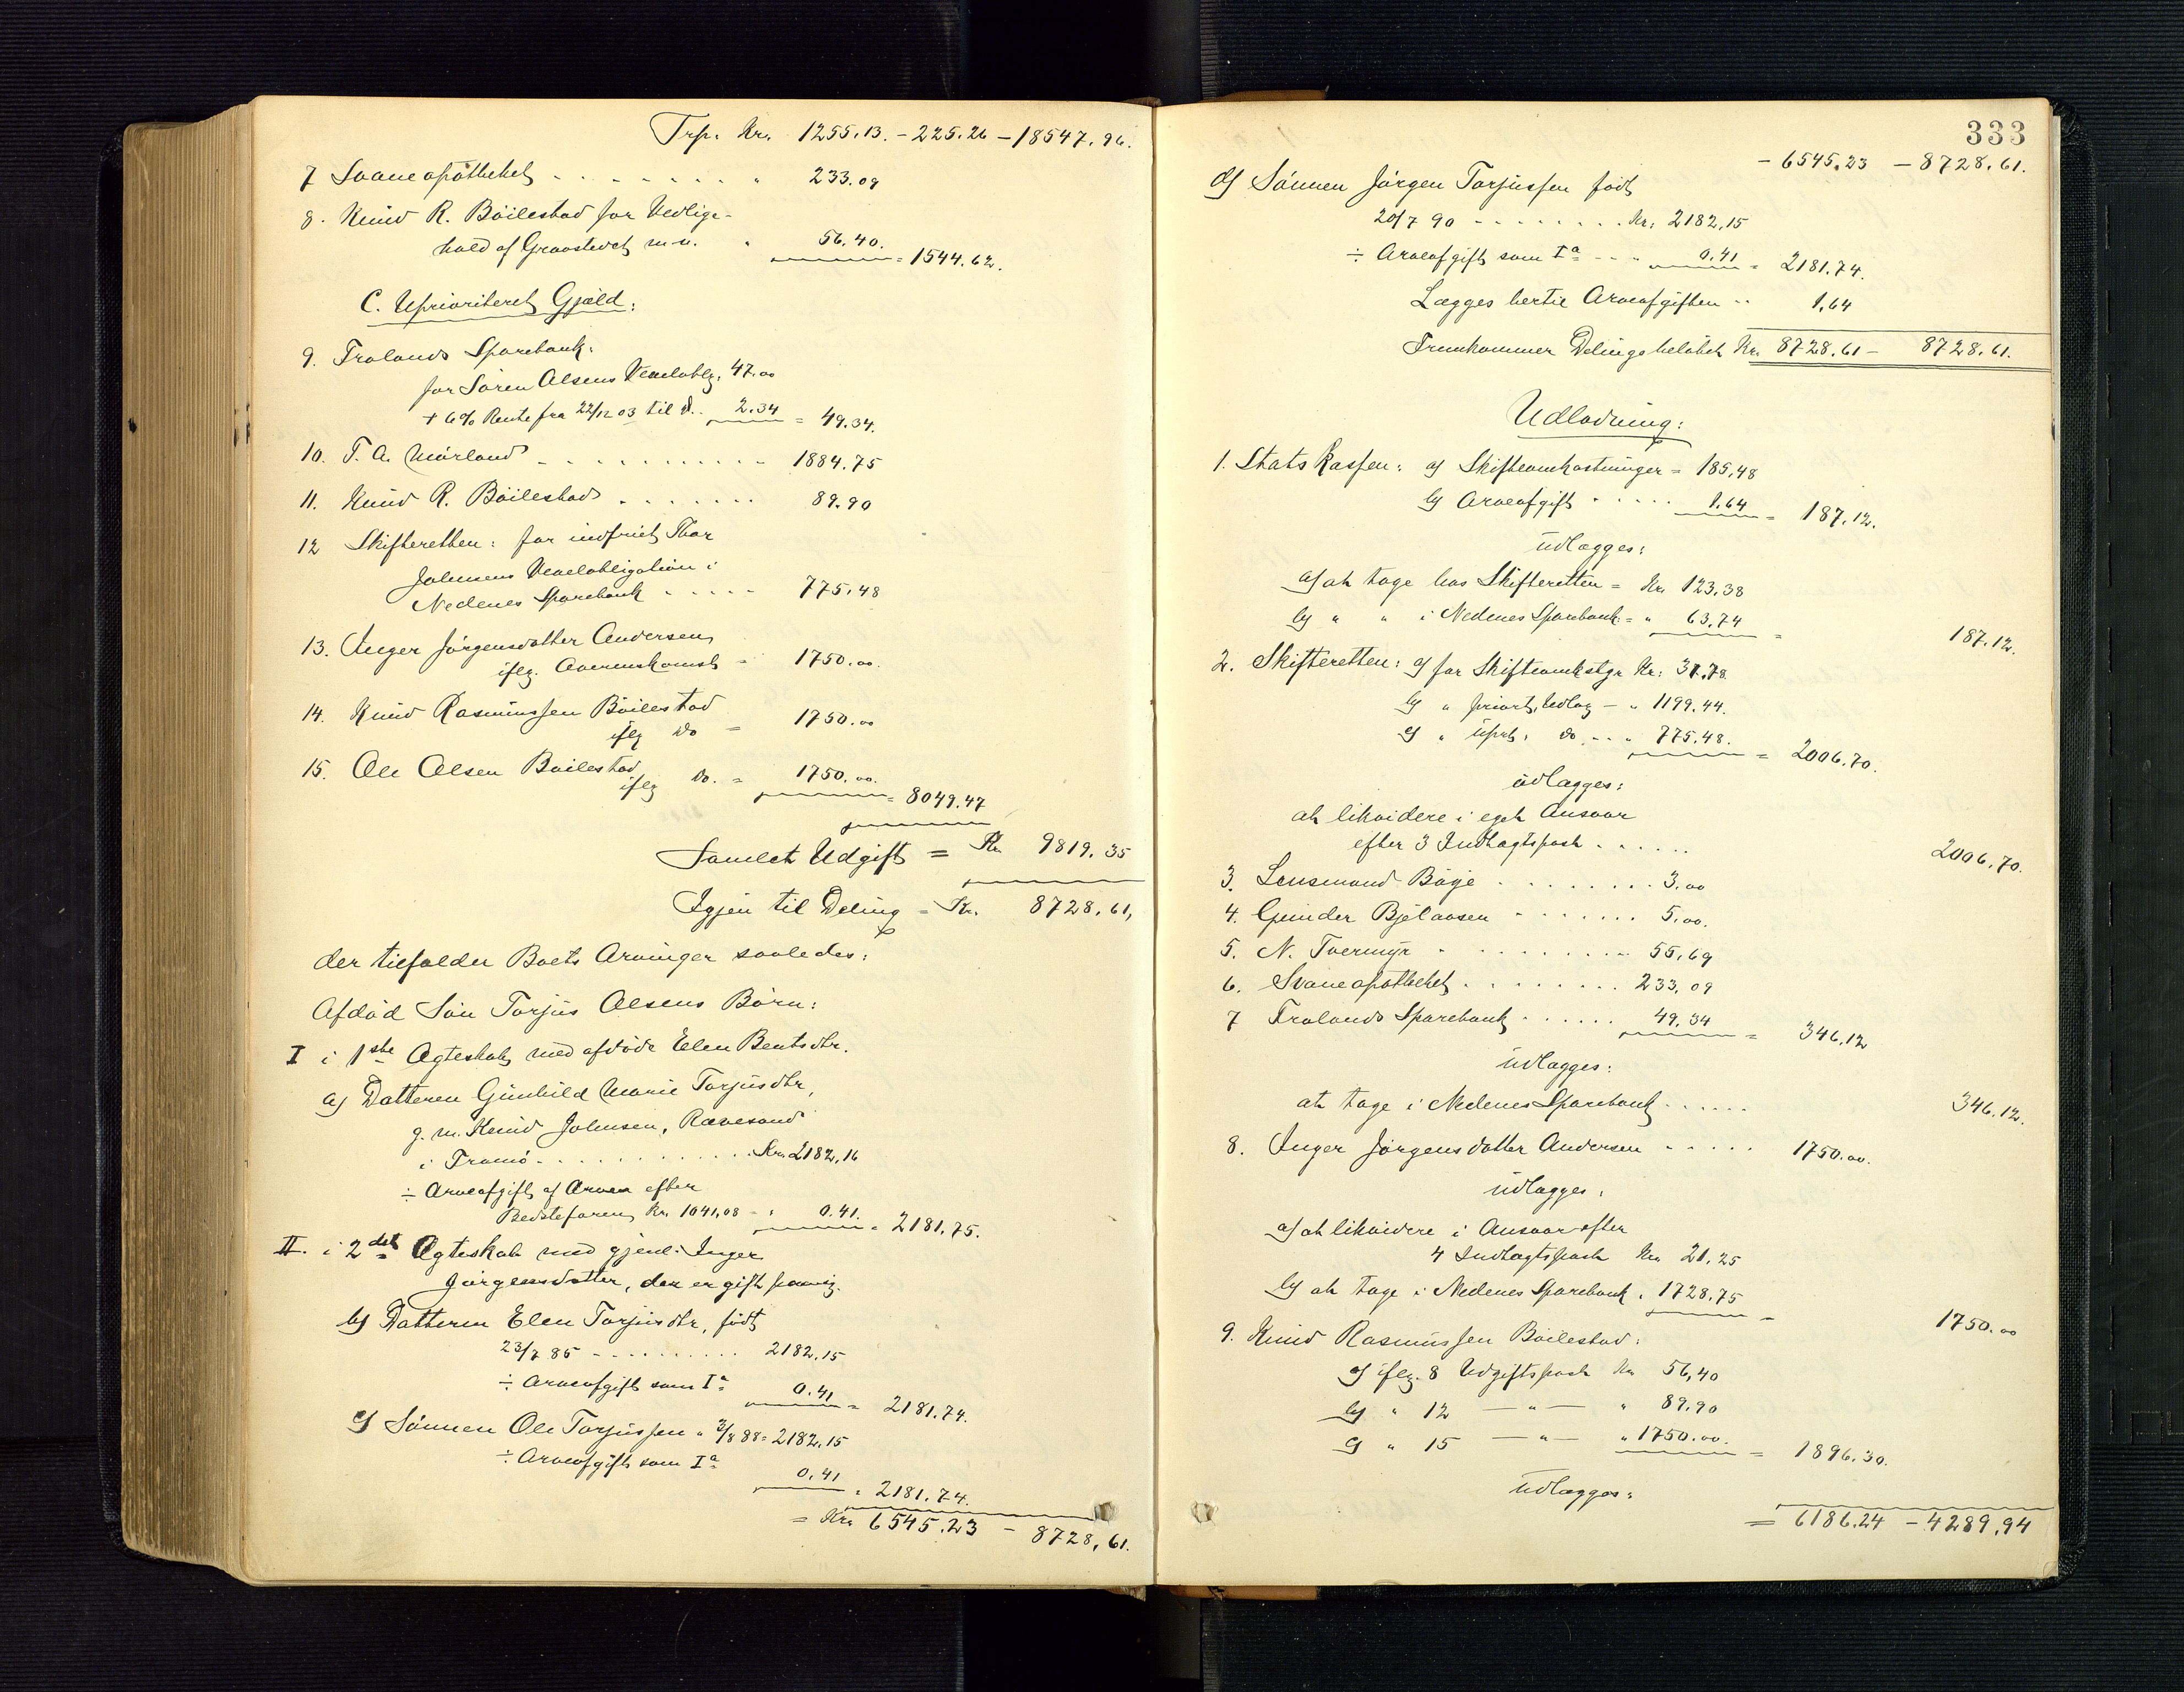 Trsp. Kr. 1255.13. - 225.26 - 18547.96.
7 Svaneapotheket - - - - - - - - " 233.09
8. Knud R. Böilestad for Vedlige-
hold af Gravstedet m. v. " 56.40. = 1544.62.
C. Uprioriteret Gjæld:
9. Frolands Sparebank:
for Sören Olsens Vexeloblg. 47.00
+ 6% Rente fra 22/12 03 til d. . 2.34 = 49.34.
10. T. A. Mörland - - - - - - - - - - 1884.75
11. Knud R. Böilestad . . . . . . . 89.90
12 Skifteretten: for indfriet Thor
Johnsens Vexelobligation i
Nedenes Sparebank - - - - - 775.48
13. Inger Jörgensdatter Andersen
iflg. Overenskomst = 1750.00.
14. Knud Rasmussen Böilestad
iflg do = 1750.00
15. Ole Olsen Boilestad
iflg do. = 1750.00. = 8049.47
Samlet Udgift = Kr. 9819.35
Igjen til Deling = Kr. 8728.61,
der tilfalder Boets Arvinger saaledes:
Afdöd Sön Torjus Olsens Börn:
I i 1ste Ægteskab med afdöde Elen Bentsdtr.
a) Datteren Gunhild Marie Torjusdtr,
g. m. Knud Johnsen, Rævesand
i Tromö - . . . . . . . . . . Kr. 2182,16
÷ Arveafgift af Arven efter
Bedstefaren Kr. 1041,08 - " 0.41. = 2181,75.
II. i 2det Ægteskab med gjenl. Inger
Jörgensdatter, der er gift paany.
b) Datteren Elen Torjusdtr, födt
23/7 85 - - . . . . . . . . 2182.15
÷ Arveafgift som Ia 0.41 = 2181.74.
c) Sönnen Ole Torjussen " 3/8 88 = 2182.15
÷ Arveafgift som Ia
0.41 = 2181.74.
= Kr. 6545.23 - 8728,61.
333
- 6545.23 - 8728,61.
d) Sönnen Jörgen Torjussen födt
20/7 90 - - - . . . . . Kr. 2182,15
÷ Arveafgift som Ia - - " 0.41 = 2181.74.
Lægges hertil Arveafgiften - - 1,64
Fremkommer Delingsbelöbet Kr. 8728.61 - 8728,61.
Udlodning:
1. Statskassen: a) Skifteomkostninger = 185,48
b) Arveafgift - - - - - 1.64 = 187.12.
udlægges:
a) at tage hos Skifteretten = Kr. 123.38
b) " " i Nedenes Sparebank = " 63.74 =
187.12.
2. Skifteretten: a) for Skifteomkstgr Kr. 31.78
b) " priort, Udlæg - " 1199.44.
c) " uprt, do - - " 775.48. = 2006.70.
udlægges:
at likvidere i eget Ansvar
efter 3 Indtægtspost . . . . . .
2006.70.
3. Lensmand Böije . . . . . . . . . 3.00
4. Gunder Bjelaasen - - - . . . . 5.00.
5. N. Tvermyr - - . . . . . . . . 55,69
6. Svaneapotheket . . . . . . . . 233.09
7 Frolands Sparebank - . . . . . 49.34 = 346.12
udlægges:
at tage i Nedenes Sparebank . . . . . .
346.12.
8. Inger Jörgensdatter Andersen - - - - - 1750.00.
udlægges:
a) at likvidere i Ansvar efter
4 Indtægtspost Kr. 21.25
b) at tage i Nedenes Sparebank " 1728.75 =
1750.00
9. Knud Rasmussen Böilestad:
a) iflg. 8 Udgiftspost Kr 56,40
b) " 12 — " — " 89.90
c) " 15 — " — " 1750.00. = 1896.30.
udlægges:
= 6186.24 - 4289,94